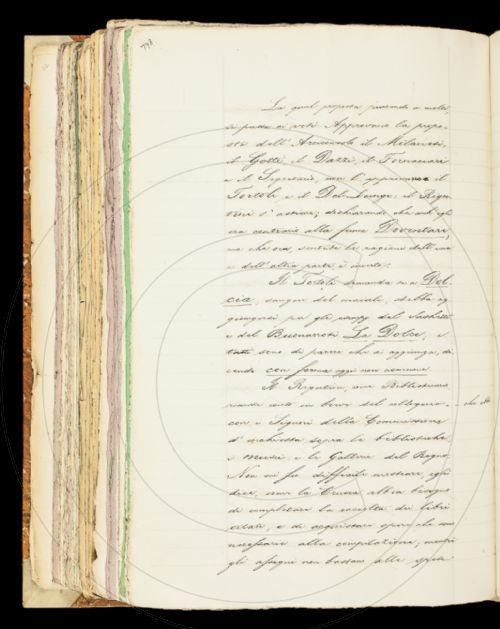 798.
La qual proposta parendo a molti,
si passa ai voti. Approvano la propo-
sta dell'Arciconsolo il Milanesi,
il Gotti, il Dazzi, il Tornabuoni
e il Segretario, non l'approvano il
Tortoli e il Del Lungo; il Rigu-
tini s'astiene, dichiarando che
era contrario alla forma Doventare,
ma che ora, sentite le ragioni dell'una
e dell'altra parte, è
Il Tortoli domanda se a Dol-
cia, sangue del maiale, debba ag-
giungersi per gli esempj del
e del Buonarroti La Dolce, e
tutti sono di parere che si aggiunga, di-
cendo con forma oggi non comune
Il Rigutini, come Bibliotecario
rende conto in breve del colloquio
con i Signori della Commissione
d'inchiesta sopra le biblioteche
i Musei e le Gallerie del Regno.
Non fu difficile mostrare, egli
dice, come la Crusca abbia bisogno
di completare la raccolta dei libri
citati, e di acquistare opere che son
necessarie alla compilazione, mentre
gli assegni non bastano alle spese